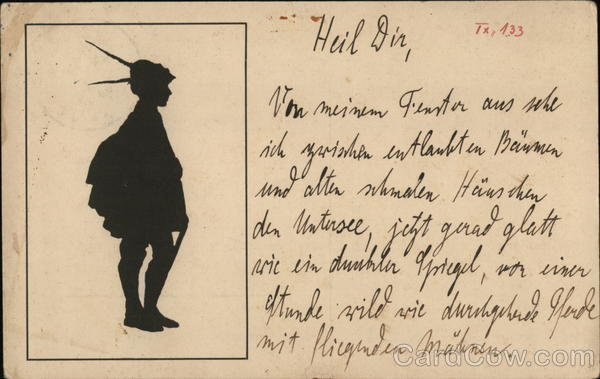 Heil Dir,
IX, 133
Von meinem Fenster aus sehe
ich zwischen entlaubten Bäumen
und alten schmalen Häuschen
den Untersee, jetzt gerad glatt
wie ein dunkler Spiegel, vor einer
Stunde wild wie durchgehende Pferde
mit fliegenden Mähnen.
CardCow.com